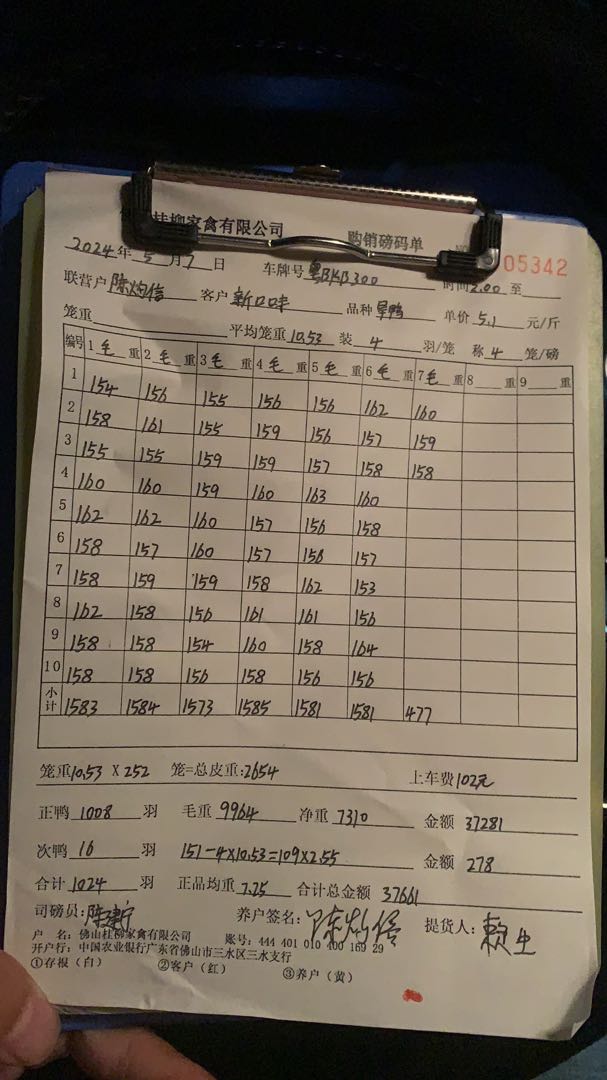 桂柳家禽有限公司 购销磅码单 NO 05342
2024年 5 月 7 日 车牌号 粤BKB300 时间 2.00 至
联营户 陈灼信 客户 新口味 品种 旱鸭 单价 5.1 元/斤
笼重 平均笼重 10.53 装 4 羽/笼 称 4 笼/磅
编号 1 毛 重 2 毛 重 3 毛 重 4 毛 重 5 毛 重 6 毛 重 7 毛 重 8 重 9 重
1 154 156 155 156 156 162 160
2 158 161 155 159 156 157 159
3 155 155 159 159 157 158 158
4 160 160 159 160 163 160
5 162 162 160 157 156 158
6 158 157 160 157 156 157
7 158 159 159 158 162 153
8 162 158 156 161 161 156
9 158 158 154 160 158 164
10 158 158 156 158 156 156
小计 1583 1584 1573 1585 1581 1581 477
笼重 10.53 X 252 笼=总皮重: 2654 上车费 102元
正鸭 1008 羽 毛重 9964 净重 7310 金额 37281
次鸭 16 羽 151-4×10.53=109×2.55 金额 278
合计 1024 羽 正品均重 7.25 合计总金额 37661
司磅员: 陈建宁 养户签名: 陈灼信 提货人: 赖生
户 名: 佛山桂柳家禽有限公司 账号: 444 401 010 400 169 29
开户行: 中国农业银行广东省佛山市三水区三水支行
①存报（白） ②客户（红） ③养户（黄）